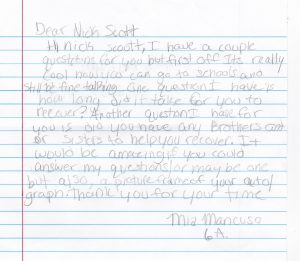 Dear Nick Scott
Hi nick scoott, I have a couple
questions for you but first off Its really
cool how you can go to schools and
still be fine talking. One question I have is
how long did it take for you to
recover? Another question I have for
you is Did you have any Brothers and
or sisters to help you recover. It
would be amazing if you could
answer my questions or may be one
but also, a picture frame of your auto/
graph. Thank you for your time
Mia Mancuso
6A.